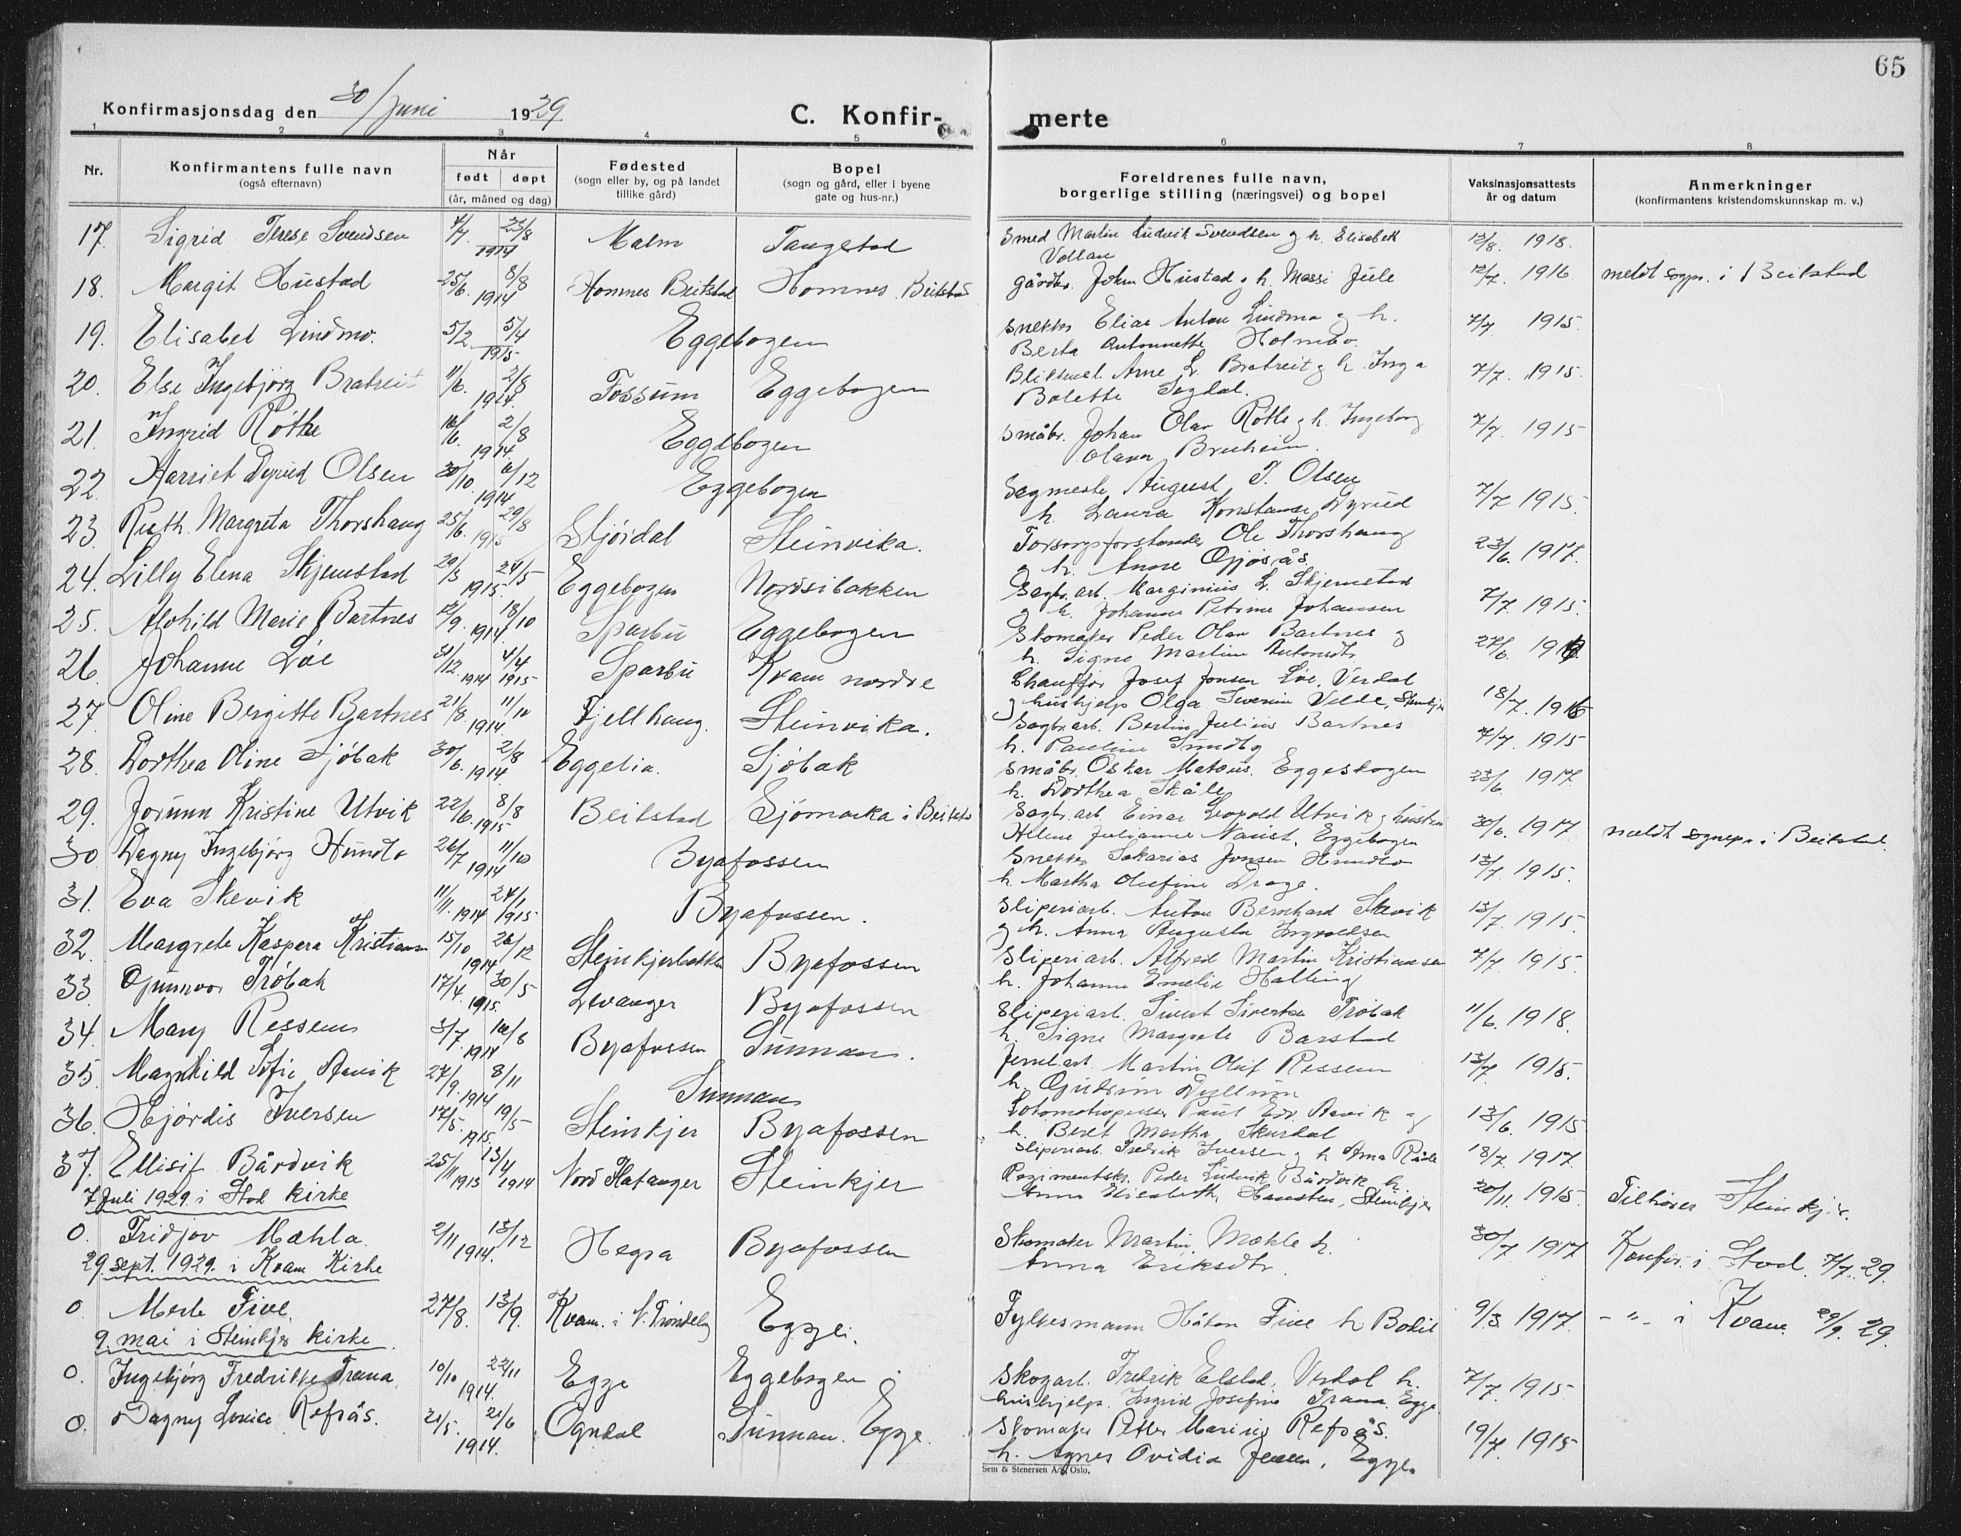 65
Konfirmasjonsdag den 30/Juni 1929
C. Konfirmerte
1 2 3 4 5 6 7 8
Nr. Konfirmantens fulle navn Når Fødested Bopel Foreldrenes fulle navn, Vaksinasjonsattests Anmerkninger
(også efternavn) født døpt (sogn eller by, og på landet (sogn og gård, eller i byene borgerlige stilling (næringsvei) og bopel år og datum (konfirmantens kristendomskunnskap m. v.)
(år, måned og dag) tillike gård) gate og hus-nr.)
17. Sigrid Terese Svendsen 4/7 23/8 Malm Tangstad Smed Martin Ludvik Svendsen og h. Elisabeth 13/8. 1918.
1914 Vollan
18. Margit Hustad 25/6. 8/8 Homnes Beitstad Homnes, Beitstad gårdbr. Johan Hustad og h. Massi Jule 12/7. 1916 meldt sogpr. i Beitstad
1914
19. Elisabet Lindmo. 5/2 5/4 Eggebogen Snekker Elias Anton Lindmo og h. 7/7 1915.
1915 Berta Antonnette Holmbo.
20. Else Ingebjörg Bratreit 11/6. 2/8 Fossum Eggebogen Blikksl. Arne L. Bratreit og h. Inga 7/7. 1915.
1914. Bolette Sagdal.
21. Ingrid Röthe 16/6. 2/8 Eggebogen Småbr. Johan Olav Röthe og h. Ingeborg 7/7. 1915
1914. Olava Bruheim.
22. Harriet Dyrud Olsen 30/10. 6/12 Eggebogen Sagmester August T. Olsen 7/7 1915.
1914 h. Laura Konstanse Dyrud
23. Ruth Margreta Thorshaug 25/6. 29/8 Stjördal Steinvika. Forsorgsforstander Ole Thorshaug 23/6. 1917.
1915 og h. Anne Gjösås
24. Lilly Elena Skjemstad 29/3 24/5 Eggebogen Nordsibakken Sagbr. arb. Marginius L. Skjemstad 7/7. 1915.
1915. og h. Johanne Petrine Johansen
25. Alvhild Marie Bartnes 12/9. 18/10 Sparbu Eggebogen Skomaker Peder Olav Bartnes og 27/6.
1914. h. Signe Martine Antonsdtr.
26. Johanne Löe 31/12. 4/4 Sparbu Kvam nordre Chauffør Josef Jonsen Löe, Verdal 18/7. 1916
1914 1915 og hushjelp Olga Severine Velde, Steinkjer
27. Oline Bergitte Bartnes 21/8 11/10 Fjellhaug. Steinvika. Sagbr. arb. Bertin Julius Bartnes 7/7. 1915
1914 h. Pauline Sundby
28. Dorthea Oline Sjöbak 30/6. 2/8 Eggelia. Sjöbak Småbr. Oskar Mateus. Eggeskogen 23/6. 1917.
1914. h. Dorthea Skåle
29. Jorunn Kristine Utvik 22/6. 8/8 Beitstad Sjömarka i Beitstad Sagbr. arb. Einar Leopold Utvik og hustru 30/6. 1917. meldt sognepr. i Beitstad.
1915. Helene Julianne Naust, Eggebogen
30 Dagny Ingebjörg Hundlo 26/7 11/10 Byafossen Snekker Sakarias Jonsen Hundlo 13/7. 1915.
1914 h. Martha Olufine Drage.
31. Eva Skevik 11/11. 24/1 Byafossen. Sliperiarb. Anton Bernhard Skevik 13/7. 1915.
1914 1915 og h. Anna Augusta Ingvaldsen
32. Margrete Kaspera Kristiansen 15/10 26/12 Steinkjerbakken Byafossen Sliperiarb. Alfred Martin Kristiansen 7/7. 1915.
1914 h. Johanne Emelie Halling
33 Gunnvor Tröbak 17/4. 30/5 Levanger Byafossen Sliperiarb. Sivert Sivertsen Tröbak 11/6. 1918.
1915. h. Signe Margrete Barstad
34. Mary Ressem 3/7. 16/8 Byafossen Sunnan. Jernb.arb. Martin Oluf Ressem 13/7 1915.
1914 h. Gudrun Dyllum
35. Magnhild Sofie Aavik 27/9. 8/11 Sunnan Lokomotivpusser Paul Edv. Aavik og 13/6. 1915
1914 h. Beret Martha Skurdal
36. Hjördis Iversen 17/5. 19/5 Steinkjer Byafossen Sliperiarb. Fredrik Iversen og h. Arna Råde 18/7. 1917.
1915.
37. Ellisif Bårdvik 25/11 13/4 Nord Flatanger Steinkjer Regimentskr. Peder Ludvik Bårdvik h. 20/11. 1915. Tilhører Steinkjer.
1913 1914 Anna Elisabeth Hansten, Steinkjer
7 Juli 1929. i Stod kirke
0. Fridjov Mæhla. 2/11 13/12 Hegra Byafossen Skomaker Martin Mæhle h. 30/7 1917 Konfir. i Stod. 7/7. 29.
1914. Anna Eriksdtr.
29. sept. 1929. i Kvam Kirke
0 Merle Five. 27/8. 13/9. Kvam. i N. Trøndelag Egge. Fylkesmann Håkon Five h. Bodil 9/3. 1917. - " - i Kvam. 29/9. 29.
9. mai i Steinkjer kirke.
0. Ingebjörg Fredrikke Trana 10/10 22/11 Egge Eggebogen Skogarb. Fredrik Elstad, Verdal h. 7/7. 1915
1914. hushjelp. Ingrid Josefine Trana. Egge
0. Dagny Lovise Refsås. 21/5. 21/6 Ogndal Sunnan. Egge. Skomaker Petter Marius Refsås. 19/7. 1915
1914. h. Agnes Ovidia Jensen, Egge.
Sem & Stenersen A/S, Oslo.